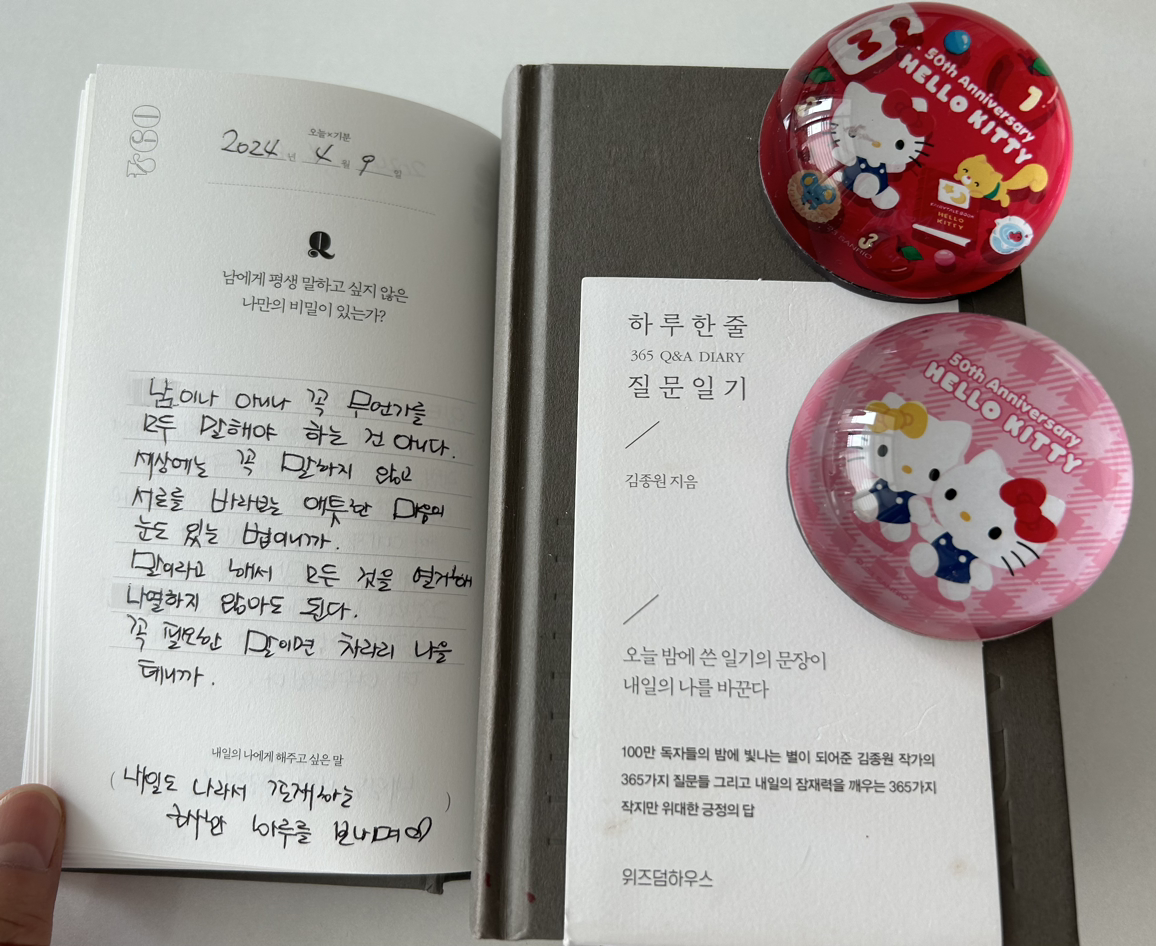 0821
오늘×기분
2024 년 4 월 9 일
Q
남에게 평생 말하고 싶지 않은
나만의 비밀이 있는가?
남이나 아니나 꼭 무언가를
모두 말해야 하는 건 아니다.
세상에는 꼭 말하지 않고
서로를 바라보는 애틋한 마음의
눈도 있는 법이니까.
말이라고 해서 모든 것을 열거해
나열하지 않아도 된다.
꼭 필요한 말이면 차라리 나을
테니까.
내일의 나에게 해주고 싶은 말
( 내일도 나라서 존재하는 )
하루를 보내며
하루 한 줄
365 Q&A DIARY
질문일기
김종원 지음
오늘 밤에 쓴 일기의 문장이
내일의 나를 바꾼다
100만 독자들의 밤에 빛나는 별이 되어준 김종원 작가의
365가지 질문들 그리고 내일의 잠재력을 깨우는 365가지
작지만 위대한 긍정의 답
위즈덤하우스
50th Anniversary
HELLO KITTY
1
HELLO
KITTY
3
50th Anniversary
HELLO KITTY